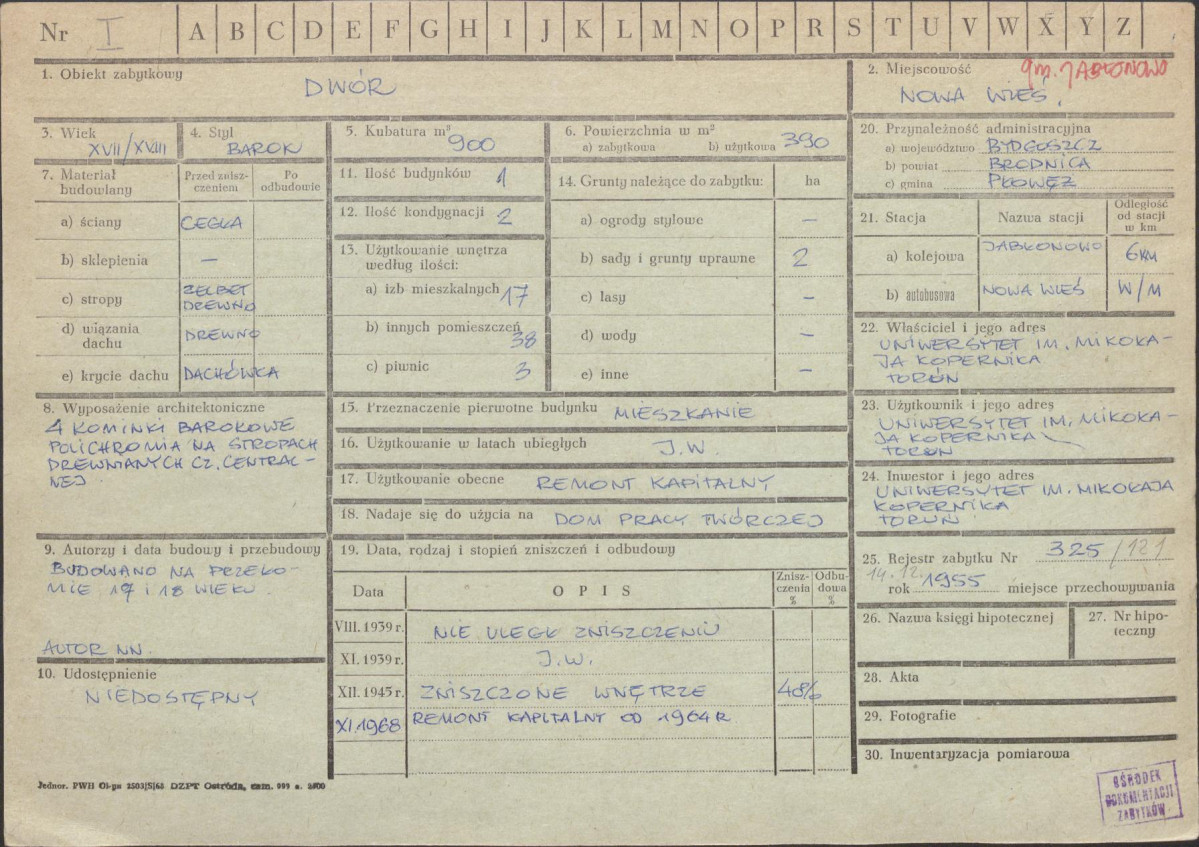 Nr I A B C D E F G H I J K L M N O P R S T U V W X Y Z
1. Obiekt zabytkowy
DWÓR
2. Miejscowość
gm. JABŁONOWO
NOWA WIEŚ,
3. Wiek
XVII/XVIII
4. Styl
BAROK
5. Kubatura m³
900
6. Powierzchnia w m²
a) zabytkowa b) użytkowa 390
20. Przynależność administracyjna
a) województwo BYDGOSZCZ
b) powiat BRODNICA
c) gmina PŁOWĘŻ
7. Materiał
budowlany
Przed znisz-
czeniem
Po
odbudowie
a) ściany CEGŁA
b) sklepienia –
c) stropy ŻELBET
DREWNO
d) wiązania
dachu DREWNO
e) krycie dachu DACHÓWKA
11. Ilość budynków 1
12. Ilość kondygnacji 2
13. Użytkowanie wnętrza
według ilości:
a) izb mieszkalnych 17
b) innych pomieszczeń
38
c) piwnic 3
14. Grunty należące do zabytku: ha
a) ogrody stylowe –
b) sady i grunty uprawne 2
c) lasy –
d) wody –
e) inne –
21. Stacja Nazwa stacji
Odległość
od stacji
w km
a) kolejowa JABŁONOWO 6KM
b) autobusowa NOWA WIEŚ W/M
22. Właściciel i jego adres
UNIWERSYTET IM. MIKOŁA-
JA KOPERNIKA
TORUŃ
8. Wyposażenie architektoniczne
4 KOMINKI BAROKOWE
POLICHROMIA NA STROPACH
DREWNIANYCH CZ. CENTRAL-
NEJ
15. Przeznaczenie pierwotne budynku MIESZKANIE
16. Użytkowanie w latach ubiegłych J.W.
17. Użytkowanie obecne REMONT KAPITALNY
18. Nadaje się do użycia na DOM PRACY TWÓRCZEJ
23. Użytkownik i jego adres
UNIWERSYTET IM. MIKOŁA-
JA KOPERNIKA
TORUŃ
24. Inwestor i jego adres
UNIWERSYTET IM. MIKOŁAJA
KOPERNIKA
TORUŃ
9. Autorzy i data budowy i przebudowy
BUDOWANO NA PRZEŁO-
MIE 17 i 18 WIEKU
AUTOR NN.
10. Udostępnienie
NIEDOSTĘPNY
19. Data, rodzaj i stopień zniszczeń i odbudowy
Data OPIS
Znisz-
czenia
%
Odbu-
dowa
%
VIII. 1939 r. NIE ULEGŁ ZNISZCZENIU
XI. 1939 r. J.W.
XII. 1945 r. ZNISZCZONE WNĘTRZE 40%
XI.1968 REMONT KAPITALNY OD 1964 R
25. Rejestr zabytku Nr 325/121
14.12.
rok 1955 miejsce przechowywania
26. Nazwa księgi hipotecznej
27. Nr hipo-
teczny
28. Akta
29. Fotografie
30. Inwentaryzacja pomiarowa
Jednor. PWH Ol-pn 2503/S/68 DZPT Ostróda, zam. 999 n. 2500
OŚRODEK
DOKUMENTACJI
ZABYTKÓW